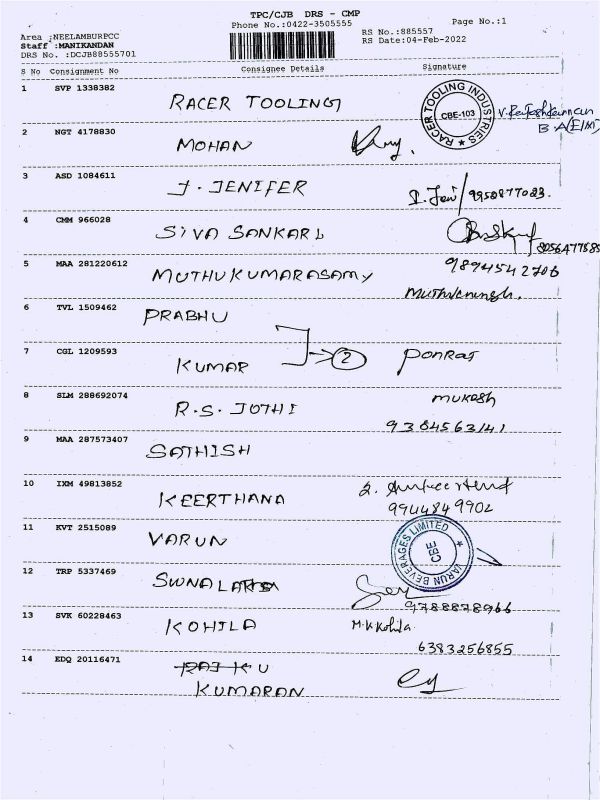 TPC/CJB DRS - CMP
Phone No.:0422-3505555
Page No.:1
Area :NEELAMBURPCC
Staff :MANIKANDAN
DRS No. :DCJB88555701
RS No.:885557
RS Date:04-Feb-2022
S No Consignment No Consignee Details Signature
1 SVP 1338382 RACER TOOLING
RACER TOOLING INDUSTRIES
CBE-103
2 NGT 4178830 MOHAN
3 ASD 1084611 J. JENIFER 9952877023.
4 CMM 966028 SIVA SANKARI 8056477585
5 MAA 281220612 MUTHUKUMARASAMY 9894542706
6 TVL 1509462 PRABHU
7 CGL 1209593 KUMAR 2 Ponraj
8 SLM 288692074 R.S. JOTHI mukesh
9384563141
9 MAA 287573407 SATHISH
10 IXM 49813852 KEERTHANA
9944849902
11 KVT 2515089 VARUN
VARUN BEVERAGES LIMITED
CBE
12 TRP 5337469
9788878966
13 SVK 60228463 KOHILA M.K.Kohila
6383256855
14 EDQ 20116471
KUMARAN